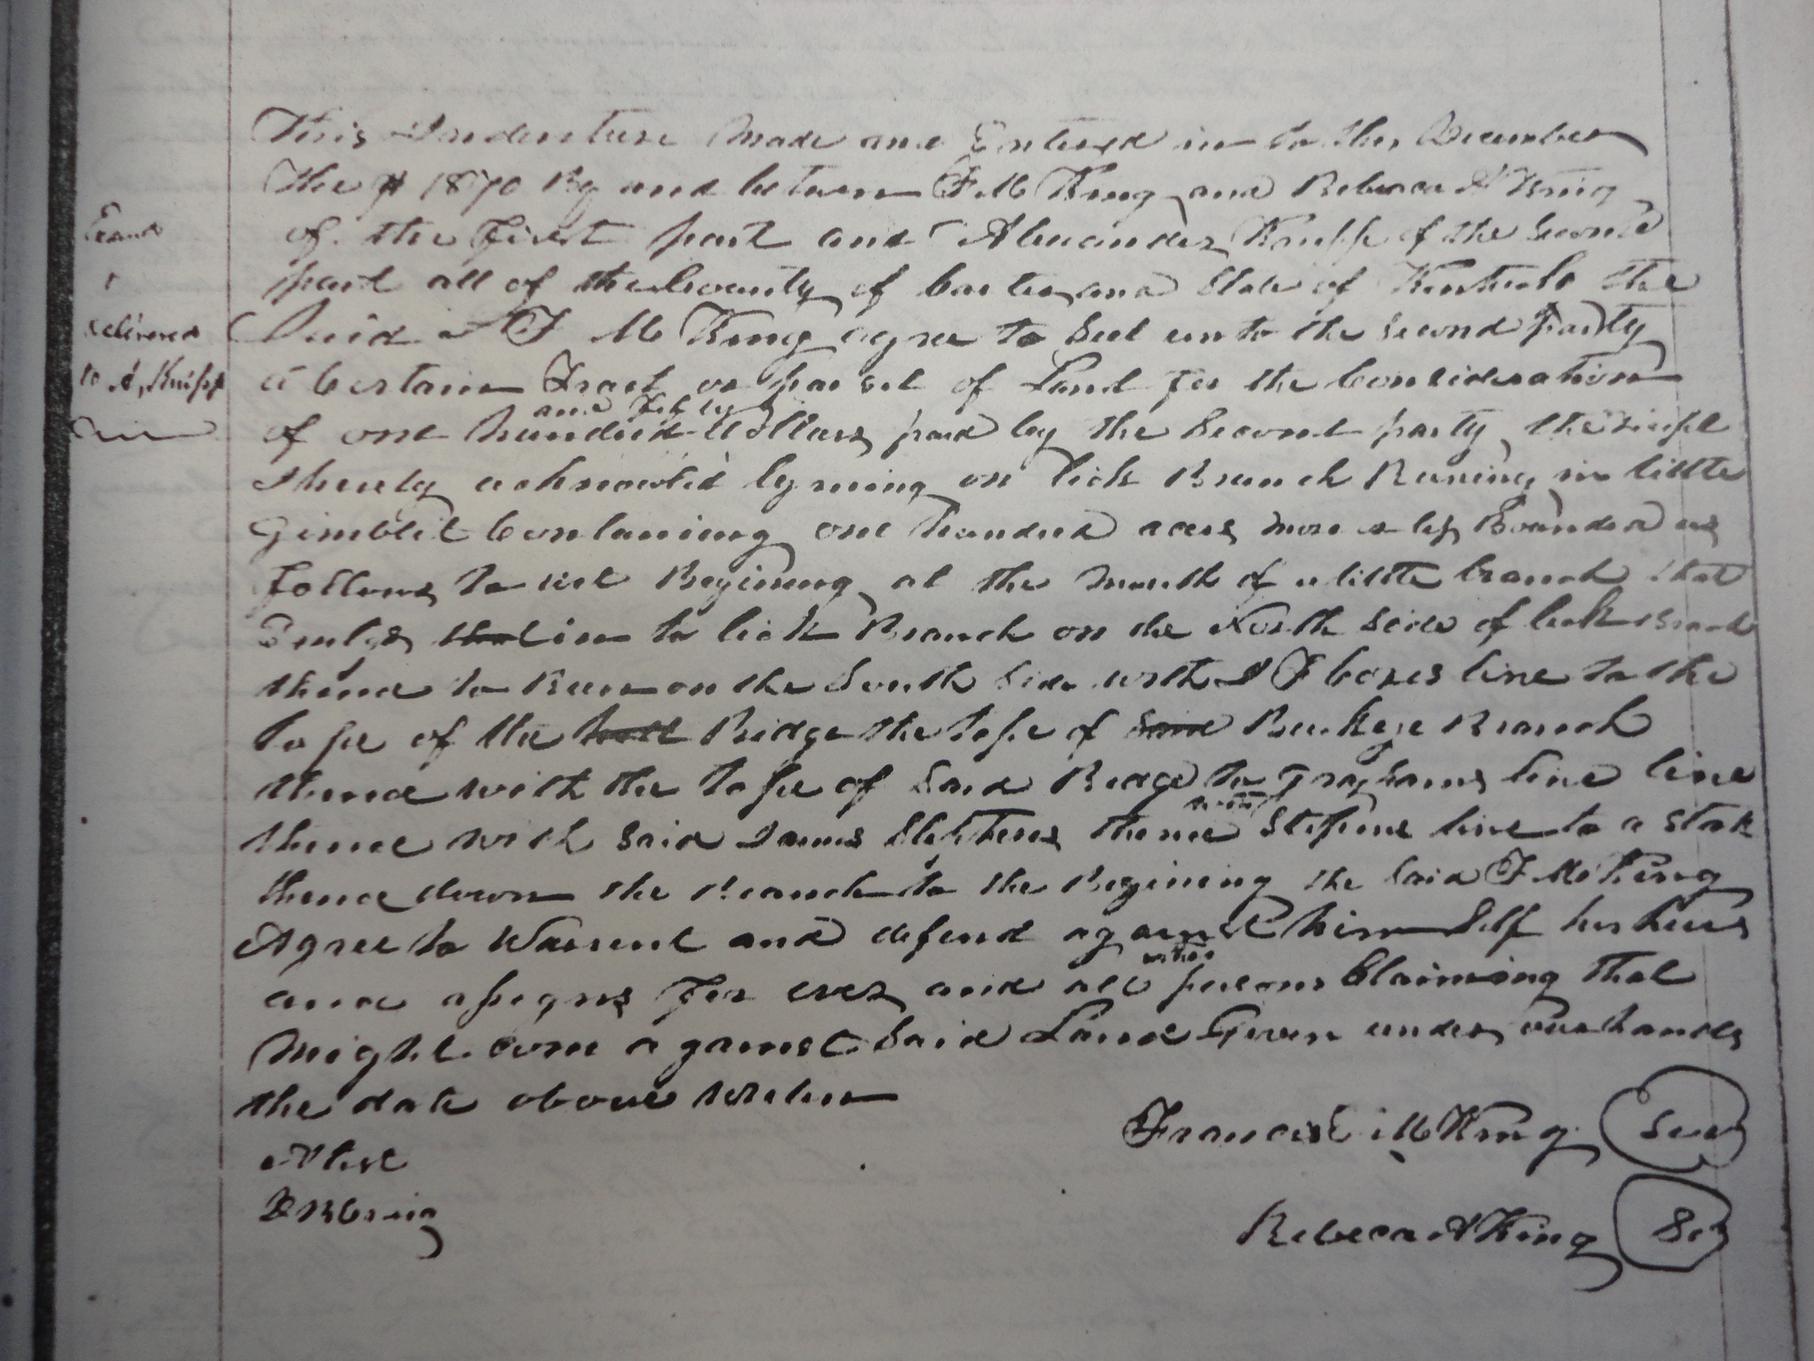 This Indenture Made and Entered in to this December
the 1870 By and between F M King and Rebecca A King
of the First part and Alexander Knipp of the Second
part all of the County of Carter and State of Kentucky the
Said F M King agree to Sell unto the second party
a Certain Tract or parsel of Land for the Consideration
and Fifty
of one hundred dollars paid by the Second party the
hereby acknowled lyning on lick Branch Runing in little
Gimblet Contaning one hundred acers more or less Bounded as
follows to wit Begining at the mouth of a little branch that
that in to lick Branch on the North Side of lick Branch
thence to Run on the South Side with F line to the
tope of the Ridge the tope of Said Buckeye Branch
thence with the tope of Said Ridge to line line
thence with Said James Stephens thence with Stepens line to a stak
thence down the Branch to the Begining the Said F M King
Agree to Warrent and defend against him Self his heirs
and assigns For ever and all other persons Claiming that
might com against Said Land Given under our hands
the date above writen
Francis M King Seal
Attest
Rebeca A King Sel
Exand
&
delivered
to A, Knipp